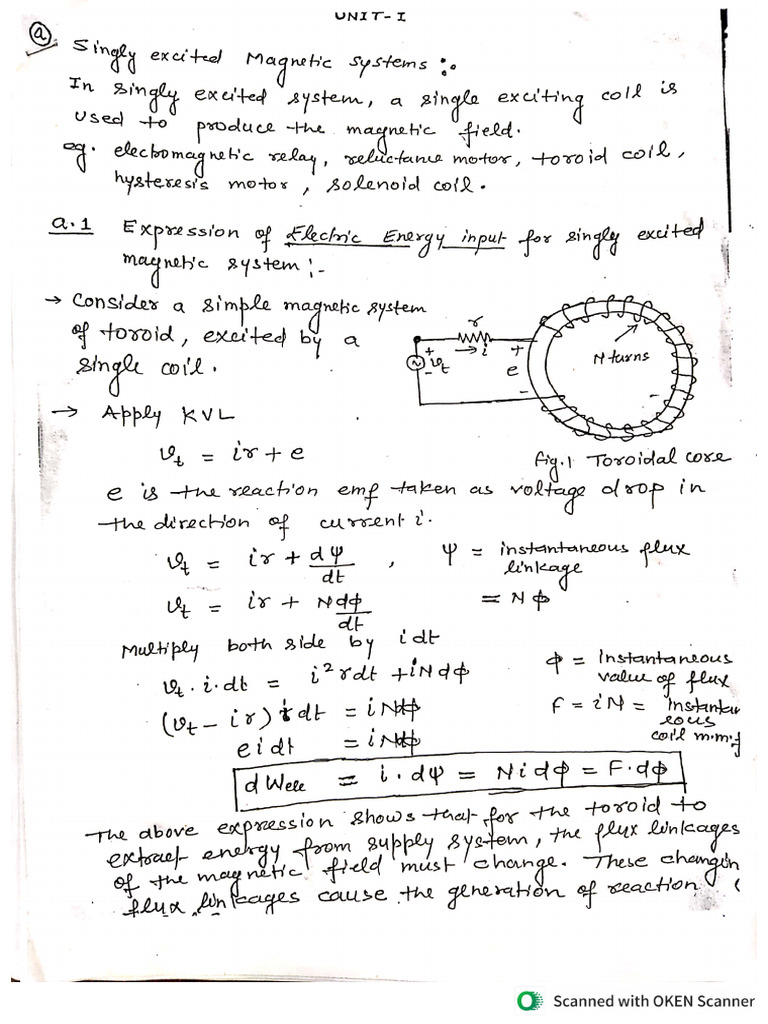 UNIT-I
(a) Singly excited Magnetic systems :-
In singly excited system, a single exciting coil is
used to produce the magnetic field.
eg. electromagnetic relay, reluctance motor, toroid coil,
hysteresis motor, solenoid coil.
a.1 Expression of Electric Energy input for singly excited
magnetic system :-
→ Consider a simple magnetic system
of toroid, excited by a
single coil.
r
→ i
+ vt -
+ e -
N turns
Fig.1 Toroidal core
→ Apply KVL
vt = ir + e
e is the reaction emf taken as voltage drop in
the direction of current i.
vt = ir + dψ/dt , ψ = instantaneous flux
linkage
vt = ir + Ndφ/dt = Nφ
Multiply both side by idt
vt.i.dt = i²rdt + iNdφ
φ = instantaneous
value of flux
(vt - ir) idt = iNdφ
F = iN = instantan
eous
coil m.m.f
eidt = iNdφ
dWele = i.dψ = Nidφ = F.dφ
The above expression shows that for the toroid to
extract energy from supply system, the flux linkages
of the magnetic field must change. These changin
flux linkages cause the generation of reaction
Scanned with OKEN Scanner